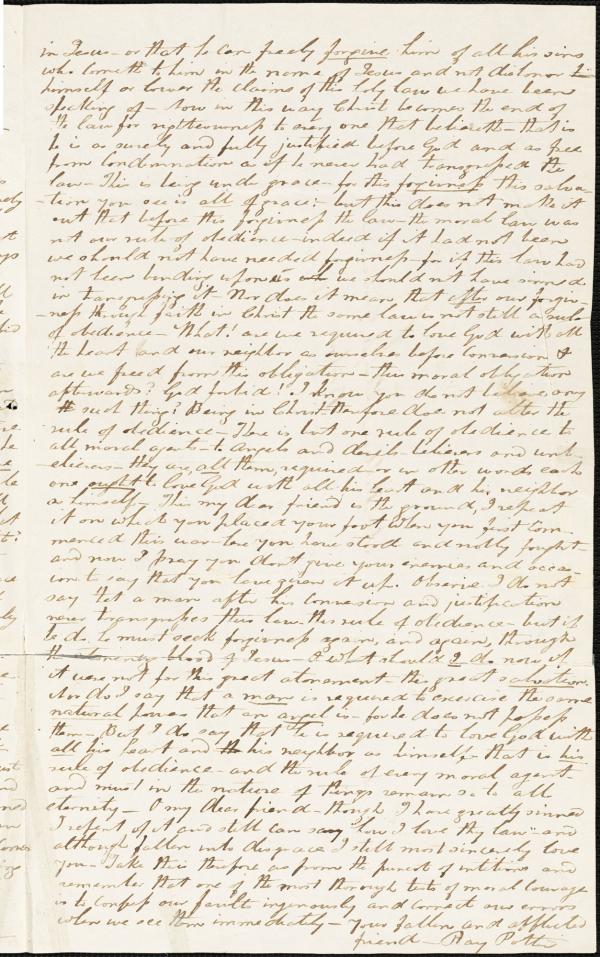 in Jesus - or that he can freely forgive him of all his sins
who cometh to him in the name of Jesus and not dishonor
himself or lower the claims of this holy law we have been
speking of - Now in this way Christ becomes the end of
the law for righteousness to every one that believeth - that is
he is as surely and fully justified before God and as free
from condemnation as if he never had transgressed the
law - This is being under grace - for this forgivness this salva-
tion you see is all of grace; - but this does not make it
out that before this forgivness the law - the moral law was
not our rule of obedience - indeed if it had not been
we should not have needed forgivness - for if this law had
not been binding upon us we should not have sinned
in transgressing it - Nor does it mean that after our forgiv-
ness through faith in Christ the same law is not still a rule
of obedience - What! are we required to love God with all
the heart and our neighbor as ourselves before conversion &
are we freed from this obligation - this moral obligation
afterwards? God forbid! I know you do not believe any
such thing! Being in Christ therefore does not alter the
rule of obedience - There is but one rule of obedience to
all moral agents - to angels and devils - believers and unb-
elievers - they are, all them, required or in other words each
one ought to love God with all his heart and his neighbor
as himself - This my dear friend is the ground, I repeat
it on which you placed your foot when you first com-
menced this war - here you have stood and nobly fought -
and now I pray you don't give your enemies and occa-
sion to say that you have given it up. Observe I do not
say that a man after his conversion and justification
never transgresses this law - this rule of obedience - but if
he do he must seek forgivness again, and again, through
the atoneing blood of Jesus - O what should I do now if
it were not for this great atonement - this great salvation.
Nor do I say that a man is required to exercise the same
natural powers that an angel is - for he does not possess
them - But I do say that he is required to love God with
all his heart and his neighbor as himself - that is his
rule of obedience - and the rule of every moral agent
and must in the nature of things remain so to all
eternity - O my dear friend - though I have greatly sinned
I repent of it and still can say "how I love thy law" and
although fallen into disgrace I still most sincerely love
you - Take this therefore as from the purest of intitions and
remember that one of the most thorough tests of moral courage
is to confess our faults ingenuously and correct our errors
when we see them immediately - your fallen and afflicted
friend - Ray Potter